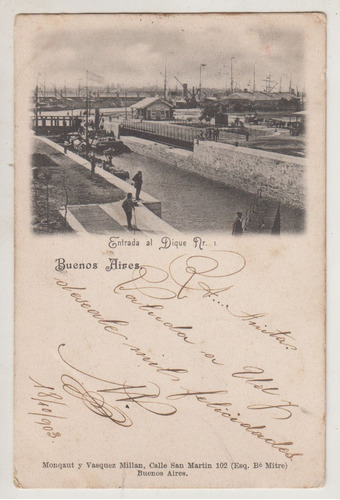 Entrada al Dique Nr. 1
Buenos Aires.
Anita:
Saluda a Ud y
deseale mil felicidades
18/10/903
Monqaut y Vasquez Millan, Calle San Martin 102 (Esq. Bé Mitre)
Buenos Aires.